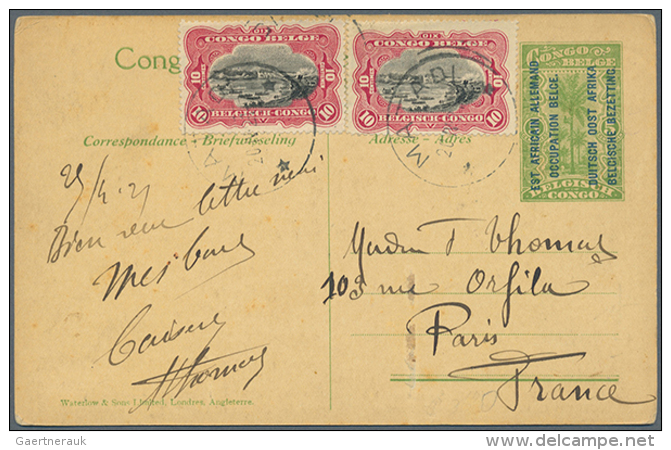 Cong
DIX
CONGO BELGE
10 10
10 10
BELGISCH-CONGO
DIX
CONGO BELGE
10 10
10 10
BELGISCH-CONGO
CONGO BELGE
EST AFRICAIN ALLEMAND
OCCUPATION BELGE.
DUITSCH OOST AFRIKA
BELGISCHE BEZETTING.
BELGISCH CONGO
Correspondance - Briefwisseling
Adresse - Adres
Bien reçu lettre
Mes
Baisers
Thomas
Thomas
103 rue Orfila
Paris
France
Waterlow & Sons Limited, Londres, Angleterre.
Gaertnerauk
www.delcampe.net